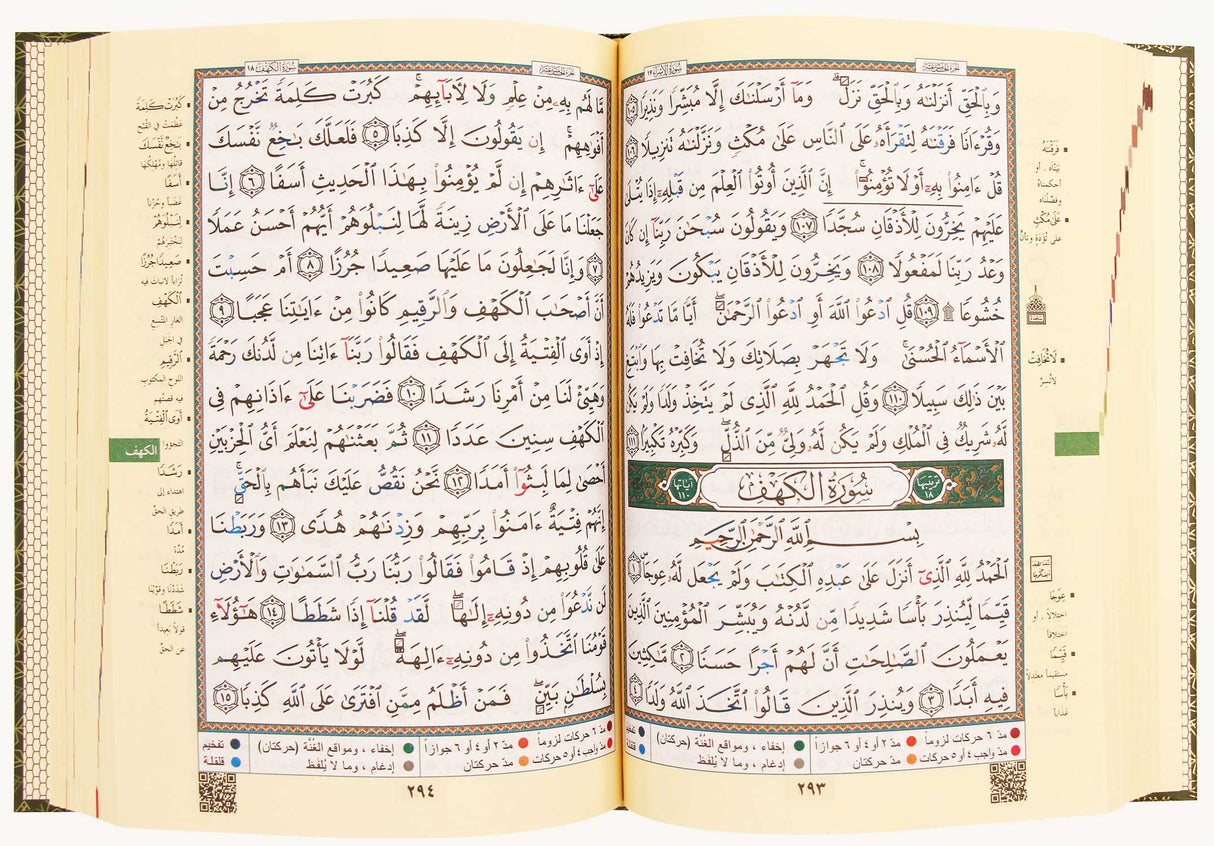 سورة الإسراء ١٧
الجزء الخامس عشر
وَبِالْحَقِّ أَنزَلْنَٰهُ وَبِالْحَقِّ نَزَلَ ۗ وَمَآ أَرْسَلْنَٰكَ إِلَّا مُبَشِّرًا وَنَذِيرًا ١٠٥
وَقُرْءَانًا فَرَقْنَٰهُ لِتَقْرَأَهُۥ عَلَى النَّاسِ عَلَىٰ مُكْثٍ وَنَزَّلْنَٰهُ تَنزِيلًا ١٠٦
قُلْ ءَامِنُوا۟ بِهِۦٓ أَوْ لَا تُؤْمِنُوٓا۟ ۚ إِنَّ الَّذِينَ أُوتُوا۟ الْعِلْمَ مِن قَبْلِهِۦٓ إِذَا يُتْلَىٰ
عَلَيْهِمْ يَخِرُّونَ لِلْأَذْقَانِ سُجَّدًا ١٠٧ وَيَقُولُونَ سُبْحَٰنَ رَبِّنَآ إِن كَانَ
وَعْدُ رَبِّنَا لَمَفْعُولًا ١٠٨ وَيَخِرُّونَ لِلْأَذْقَانِ يَبْكُونَ وَيَزِيدُهُمْ
خُشُوعًا ۩ ١٠٩ قُلِ ادْعُوا۟ اللَّهَ أَوِ ادْعُوا۟ الرَّحْمَٰنَ ۖ أَيًّا مَّا تَدْعُوا۟ فَلَهُ
الْأَسْمَآءُ الْحُسْنَىٰ ۚ وَلَا تَجْهَرْ بِصَلَاتِكَ وَلَا تُخَافِتْ بِهَا وَابْتَغِ
بَيْنَ ذَٰلِكَ سَبِيلًا ١١٠ وَقُلِ الْحَمْدُ لِلَّهِ الَّذِى لَمْ يَتَّخِذْ وَلَدًا وَلَمْ يَكُن
لَّهُۥ شَرِيكٌ فِى الْمُلْكِ وَلَمْ يَكُن لَّهُۥ وَلِىٌّ مِّنَ الذُّلِّ ۖ وَكَبِّرْهُ تَكْبِيرًا ١١١
ترتيبها ١٨ سُورَةُ الكَهْفِ آياتها ١١٠
بِسْمِ اللَّهِ الرَّحْمَٰنِ الرَّحِيمِ
الْحَمْدُ لِلَّهِ الَّذِىٓ أَنزَلَ عَلَىٰ عَبْدِهِ الْكِتَٰبَ وَلَمْ يَجْعَل لَّهُۥ عِوَجَا ۜ ١
قَيِّمًا لِّيُنذِرَ بَأْسًا شَدِيدًا مِّن لَّدُنْهُ وَيُبَشِّرَ الْمُؤْمِنِينَ الَّذِينَ
يَعْمَلُونَ الصَّٰلِحَٰتِ أَنَّ لَهُمْ أَجْرًا حَسَنًا ٢ مَّٰكِثِينَ
فِيهِ أَبَدًا ٣ وَيُنذِرَ الَّذِينَ قَالُوا۟ اتَّخَذَ اللَّهُ وَلَدًا ٤
فَرَقْنَٰهُ
بيّنّاه . أو
أحكمناه
وفصّلناه
عَلَىٰ مُكْثٍ
على تُؤدة وتأنٍّ
لَا تُخَافِتْ
لا تُسِرّ
عِوَجًا
اختلالاً . أو
اختلافاً
قَيِّمًا
مستقيماً معتدلاً
بَأْسًا
عذاباً
مدّ ٦ حركات لزوماً
مدّ ٢ أو ٤ أو ٦ جوازاً
إخفاء ، ومواقع الغُنّة (حركتان)
تفخيم
مدّ واجب ٤ أو ٥ حركات
مدّ حركتان
إدغام ، وما لا يُلفظ
قلقلة
٢٩٣
الجزء الخامس عشر
سورة الكهف ١٨
مَّا لَهُم بِهِۦ مِنْ عِلْمٍ وَلَا لِءَابَآئِهِمْ ۚ كَبُرَتْ كَلِمَةً تَخْرُجُ مِنْ
أَفْوَٰهِهِمْ ۚ إِن يَقُولُونَ إِلَّا كَذِبًا ٥ فَلَعَلَّكَ بَٰخِعٌ نَّفْسَكَ
عَلَىٰٓ ءَاثَٰرِهِمْ إِن لَّمْ يُؤْمِنُوا۟ بِهَٰذَا الْحَدِيثِ أَسَفًا ٦ إِنَّا
جَعَلْنَا مَا عَلَى الْأَرْضِ زِينَةً لَّهَا لِنَبْلُوَهُمْ أَيُّهُمْ أَحْسَنُ عَمَلًا
٧ وَإِنَّا لَجَٰعِلُونَ مَا عَلَيْهَا صَعِيدًا جُرُزًا ٨ أَمْ حَسِبْتَ
أَنَّ أَصْحَٰبَ الْكَهْفِ وَالرَّقِيمِ كَانُوا۟ مِنْ ءَايَٰتِنَا عَجَبًا ٩
إِذْ أَوَى الْفِتْيَةُ إِلَى الْكَهْفِ فَقَالُوا۟ رَبَّنَآ ءَاتِنَا مِن لَّدُنكَ رَحْمَةً
وَهَيِّئْ لَنَا مِنْ أَمْرِنَا رَشَدًا ١٠ فَضَرَبْنَا عَلَىٰٓ ءَاذَانِهِمْ فِى
الْكَهْفِ سِنِينَ عَدَدًا ١١ ثُمَّ بَعَثْنَٰهُمْ لِنَعْلَمَ أَىُّ الْحِزْبَيْنِ
أَحْصَىٰ لِمَا لَبِثُوٓا۟ أَمَدًا ١٢ نَّحْنُ نَقُصُّ عَلَيْكَ نَبَأَهُم بِالْحَقِّ ۚ
إِنَّهُمْ فِتْيَةٌ ءَامَنُوا۟ بِرَبِّهِمْ وَزِدْنَٰهُمْ هُدًى ١٣ وَرَبَطْنَا
عَلَىٰ قُلُوبِهِمْ إِذْ قَامُوا۟ فَقَالُوا۟ رَبُّنَا رَبُّ السَّمَٰوَٰتِ وَالْأَرْضِ
لَن نَّدْعُوَا۟ مِن دُونِهِۦٓ إِلَٰهًا ۖ لَّقَدْ قُلْنَآ إِذًا شَطَطًا ١٤ هَٰٓؤُلَآءِ
قَوْمُنَا اتَّخَذُوا۟ مِن دُونِهِۦٓ ءَالِهَةً ۖ لَّوْلَا يَأْتُونَ عَلَيْهِم
بِسُلْطَٰنٍۭ بَيِّنٍ ۖ فَمَنْ أَظْلَمُ مِمَّنِ افْتَرَىٰ عَلَى اللَّهِ كَذِبًا ١٥
كَبُرَتْ كَلِمَةً
عظُمت في القُبح
بَٰخِعٌ نَّفْسَكَ
قاتلها ومُهلكها
أَسَفًا
غضباً وحُزناً
لِنَبْلُوَهُمْ
لنختبرهم
صَعِيدًا جُرُزًا
تراباً لا نبات فيه
الْكَهْفِ
الغار المتّسع
في الجبل
الرَّقِيمِ
اللوح المكتوب
فيه قصتهم
أَوَى الْفِتْيَةُ
التجؤوا
رَشَدًا
اهتداء إلى
طريق الحقّ
أَمَدًا
مُدّة
رَبَطْنَا
شددنا وقوّينا
شَطَطًا
قولاً بعيداً
عن الحقّ
الكهف
مدّ ٦ حركات لزوماً
مدّ ٢ أو ٤ أو ٦ جوازاً
إخفاء ، ومواقع الغُنّة (حركتان)
تفخيم
مدّ واجب ٤ أو ٥ حركات
مدّ حركتان
إدغام ، وما لا يُلفظ
قلقلة
٢٩٤